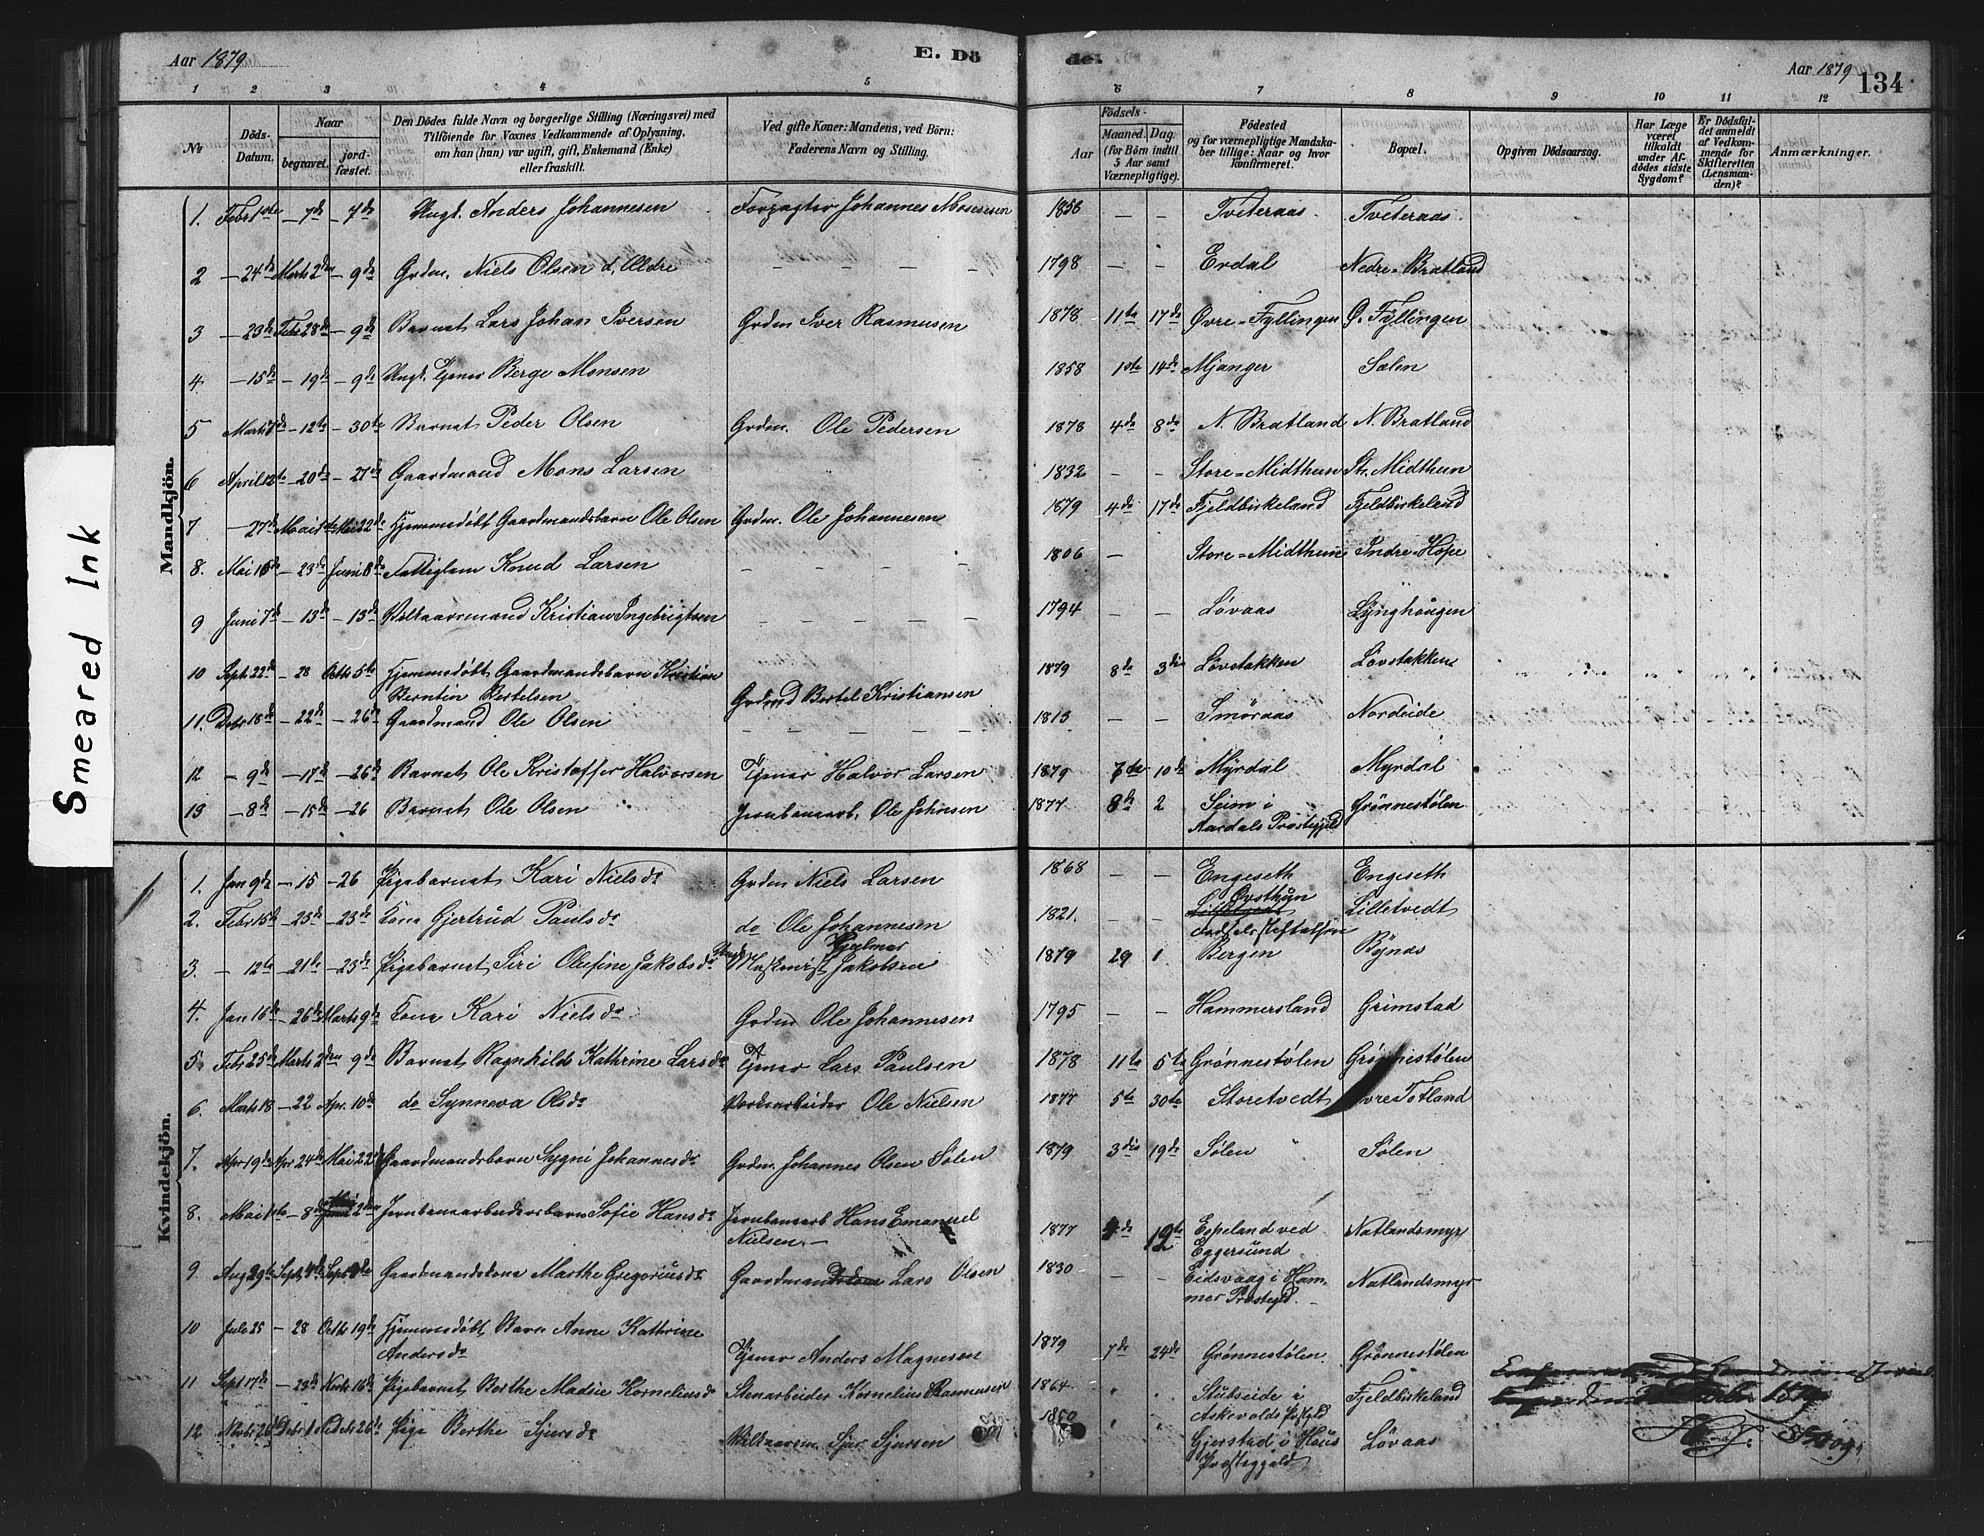 Aar 1879
E. Dö
de.
Aar 1879
134
1 2 3 4 5 6 7 8 9 10 11 12
№
Döds-Datum.
Naar
begravet.
jord-fæstet.
Den Dödes fulde Navn og borgerlige Stilling (Næringsvei) med
Tilföiende for Voxnes Vedkommende af Oplysning,
om han (hun) var ugift, gift, Enkemand (Enke)
eller fraskilt.
Ved gifte Koner: Mandens, ved Börn:
Faderens Navn og Stilling.
Födsels-
Aar
Maaned. Dag.
(for Börn indtil
5 Aar samt
Værnepligtige).
Födested
og for værnepligtige Mandska-
ber tillige: Naar og hvor
konfirmeret.
Bopæl.
Opgiven Dödsaarsag.
Har Læge
været
tilkaldt
under Af-
dödes sidste
Sygdom?
Er Dödsfal-
det anmeldt
af Vedkom-
mende for
Skifteretten
(Lensman-
den)?
Anmærkninger.
Smeared Ink
Mandkjön.
1. Febr 1ste – 7de – 7de Ungk. Anders Johannesen Johannes Mosesen 1858 – – Tveteraas Tveteraas
2 – 24de Marts 2den – 9de Grdm. Niels Olsen d. Ældre – – – – 1798 – – Erdal Nedre-Bratland
3 – 23de Febr 28de – 9de Barnet Lars Johan Iversen Grdm Iver Rasmusen 1878 11te 17de Øvre-Fyllingen Ø. Fyllingen
4. – 15de – 19de – 9de Ungk. Tjener Berge Monsen 1858 1ste 14de Mjanger Sælen
5 Marts 7de – 12te – 30te Barnet Peder Olsen Grdm. Ole Pedersen 1878 4de 8de N. Bratland N. Bratland
6 April 12te – 20de – 27de Gaardmand Mons Larsen 1832 – – Store-Midthun St. Midthun
7 – 27de Mai 1ste Mai 22de Hjemmedøbt Gaardmandsbarn Ole Olsen Grdm. Ole Johannesen 1879 4de 17de Fjeldbirkeland Fjeldbirkeland
8. Mai 16de – 23de Juni 8de Fattiglem Knud Larsen – – – – 1806 – Store-Midthun Indre-Hope
9 Juni 7de – 13de – 13de Vilkaarsmand Kristian Ingebrigtsen – – – – – 1794 – – Løvaas Lynghaugen
10 Sept. 22de – 28 Octbr 5te Hjemmedøbt Gaardmandsbarn Kristian
Berntin Bertelsen Grdmd Bertel Kristiansen 1879 8de 3die Løvstakken Løvstakken
11. Debr 18de – 22de – 26de Gaardmand Ole Olsen – – – – – 1813 – – Smøraas Nordeide
12 – 9de – 17de – 26de Barnet Ole Kristoffer Halvorsen Tjener Halvor Larsen 1879 10de Myrdal Myrdal
13 – 8de – 15de – 26 Barnet Ole Olsen Jernbanearb. Ole Johnsen 1877 8de 2 Seim i
Aardals Prestegjeld Grønnestølen
Kvindekjön.
1. Jan 9de – 15 – 26 Pigebarnet Kari Nielsdr Grdm Niels Larsen 1868 – – Engeseth Engeseth
2. Febr 15de – 23de – 23de Kone Gjertrud Paulsdr do Ole Johannesen 1821. – – Øvsthun
Lilletvedt
3. – 12te – 21te – 23de Pigebarnet Siri Olefine Jakobsdr Maskinist Hjalmar Jakobsen 1879 29 1 Bergen Bynæs
4. Jan 16de – 26de Marts 9de Kone Kari Nielsdr Grdm Ole Johannesen 1795 – – Hammersland Grimstad
5. Febr 25de Marts 2den 9de Barnet Ragnhilds Kathrine Larsdr Tjener Lars Paulsen 1878 11te 5te Grønnestølen Grønnestølen
6. Marts 18 – 22 Apr. 10de do Synneva Olsdr Ole Nielsen 1877 5te 30te Storetvedt Øvre Totland
7. Apr 19de Apr 24de Mai 22de Gaardmandsbarn Sygni Johannesdr Grdm. Johannes Olsen Sølen 1879 3die 19de Sølen Sølen
8. Mai 1ste – 8de Jernbanearbeidersbarn Sofie Hansdr Jernbanearb Hans Emanuel
Nielsen. – 1877 12te Espeland ved
Eggersund Natlandsmyr
9. Aug 29te Septr 4de Gaardmandskone Marthe Gregoriusdr Gaardmand Lars Olsen 1830 – – Eidsvaag i Ham-
mer Prestegjd. Natlandsmyr
10 Jule 25 – 28 Octbr 19de Hjemmedøbt Barn Anne Kathrine
Andersdr Tjener Anders Magnesen 1879 7de 24de Grønnestølen. Grønnestølen
11 Sept 17de – 23de Novbr 16de Pigebarnet Berthe Madsie Korneliusdr Stenarbeider Kornelius Rasmussen 1864. Stubseide i
Askevolds Prstgjld Fjeldbirkeland
12 Novbr 26de Debr 1 26de Pige Berthe Sjursdr Vilkaarsm. Sjur Sjursen 1850 Gjerstad i Haus
Præstegjeld Løvaas